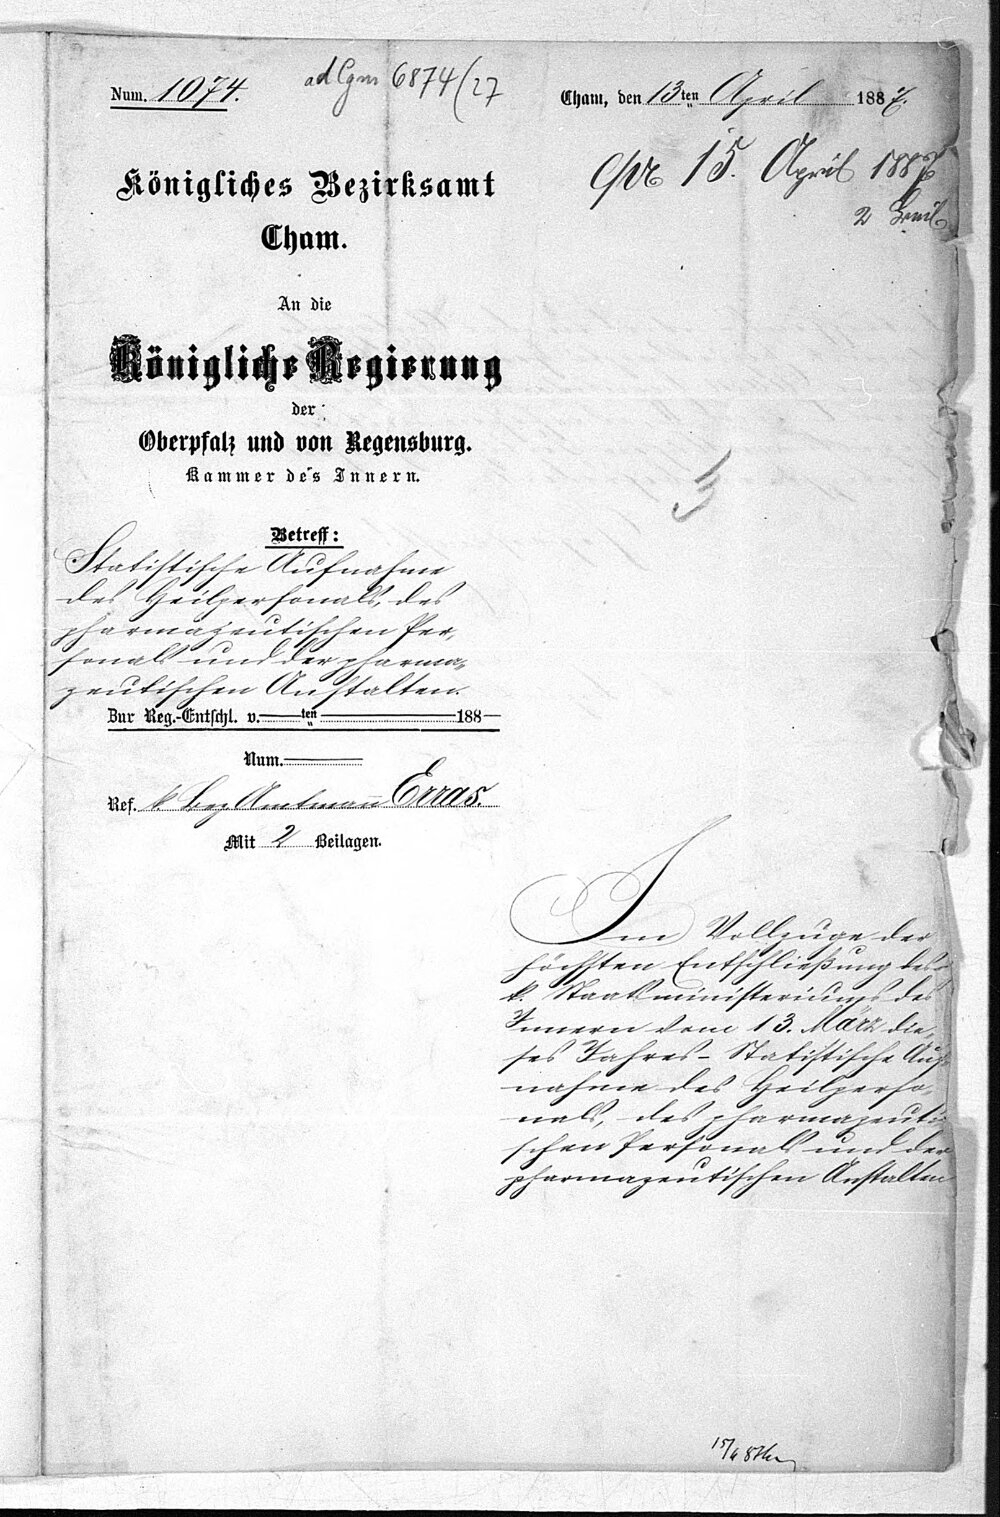 Num. 1074.
ad Cgm 6874(27
Cham, den 13ten April 1887.
15. April 1887
2
Königliches Bezirksamt
Cham.
An die
Königliche Regierung
der
Oberpfalz und von Regensburg.
Kammer des Innern.
3
Betreff:
Statistische Aufnahme
des Heilpersonals, des
pharmazeutischen Per-
sonals und der pharma-
zeutischen Anstalten.
Zur Reg.-Entschl. v. ten 188
Num.
Ref. k. Bez Amtmann Erras.
Mit 2 Beilagen.
Im Vollzuge der
höchsten Entschließung des
k. Staatsministeriums des
Innern vom 13. März die-
ses Jahres – Statistische Auf-
nahme des Heilperso-
nals, des pharmazeuti-
schen Personals und der
pharmazeutischen Anstalten
15/4 87